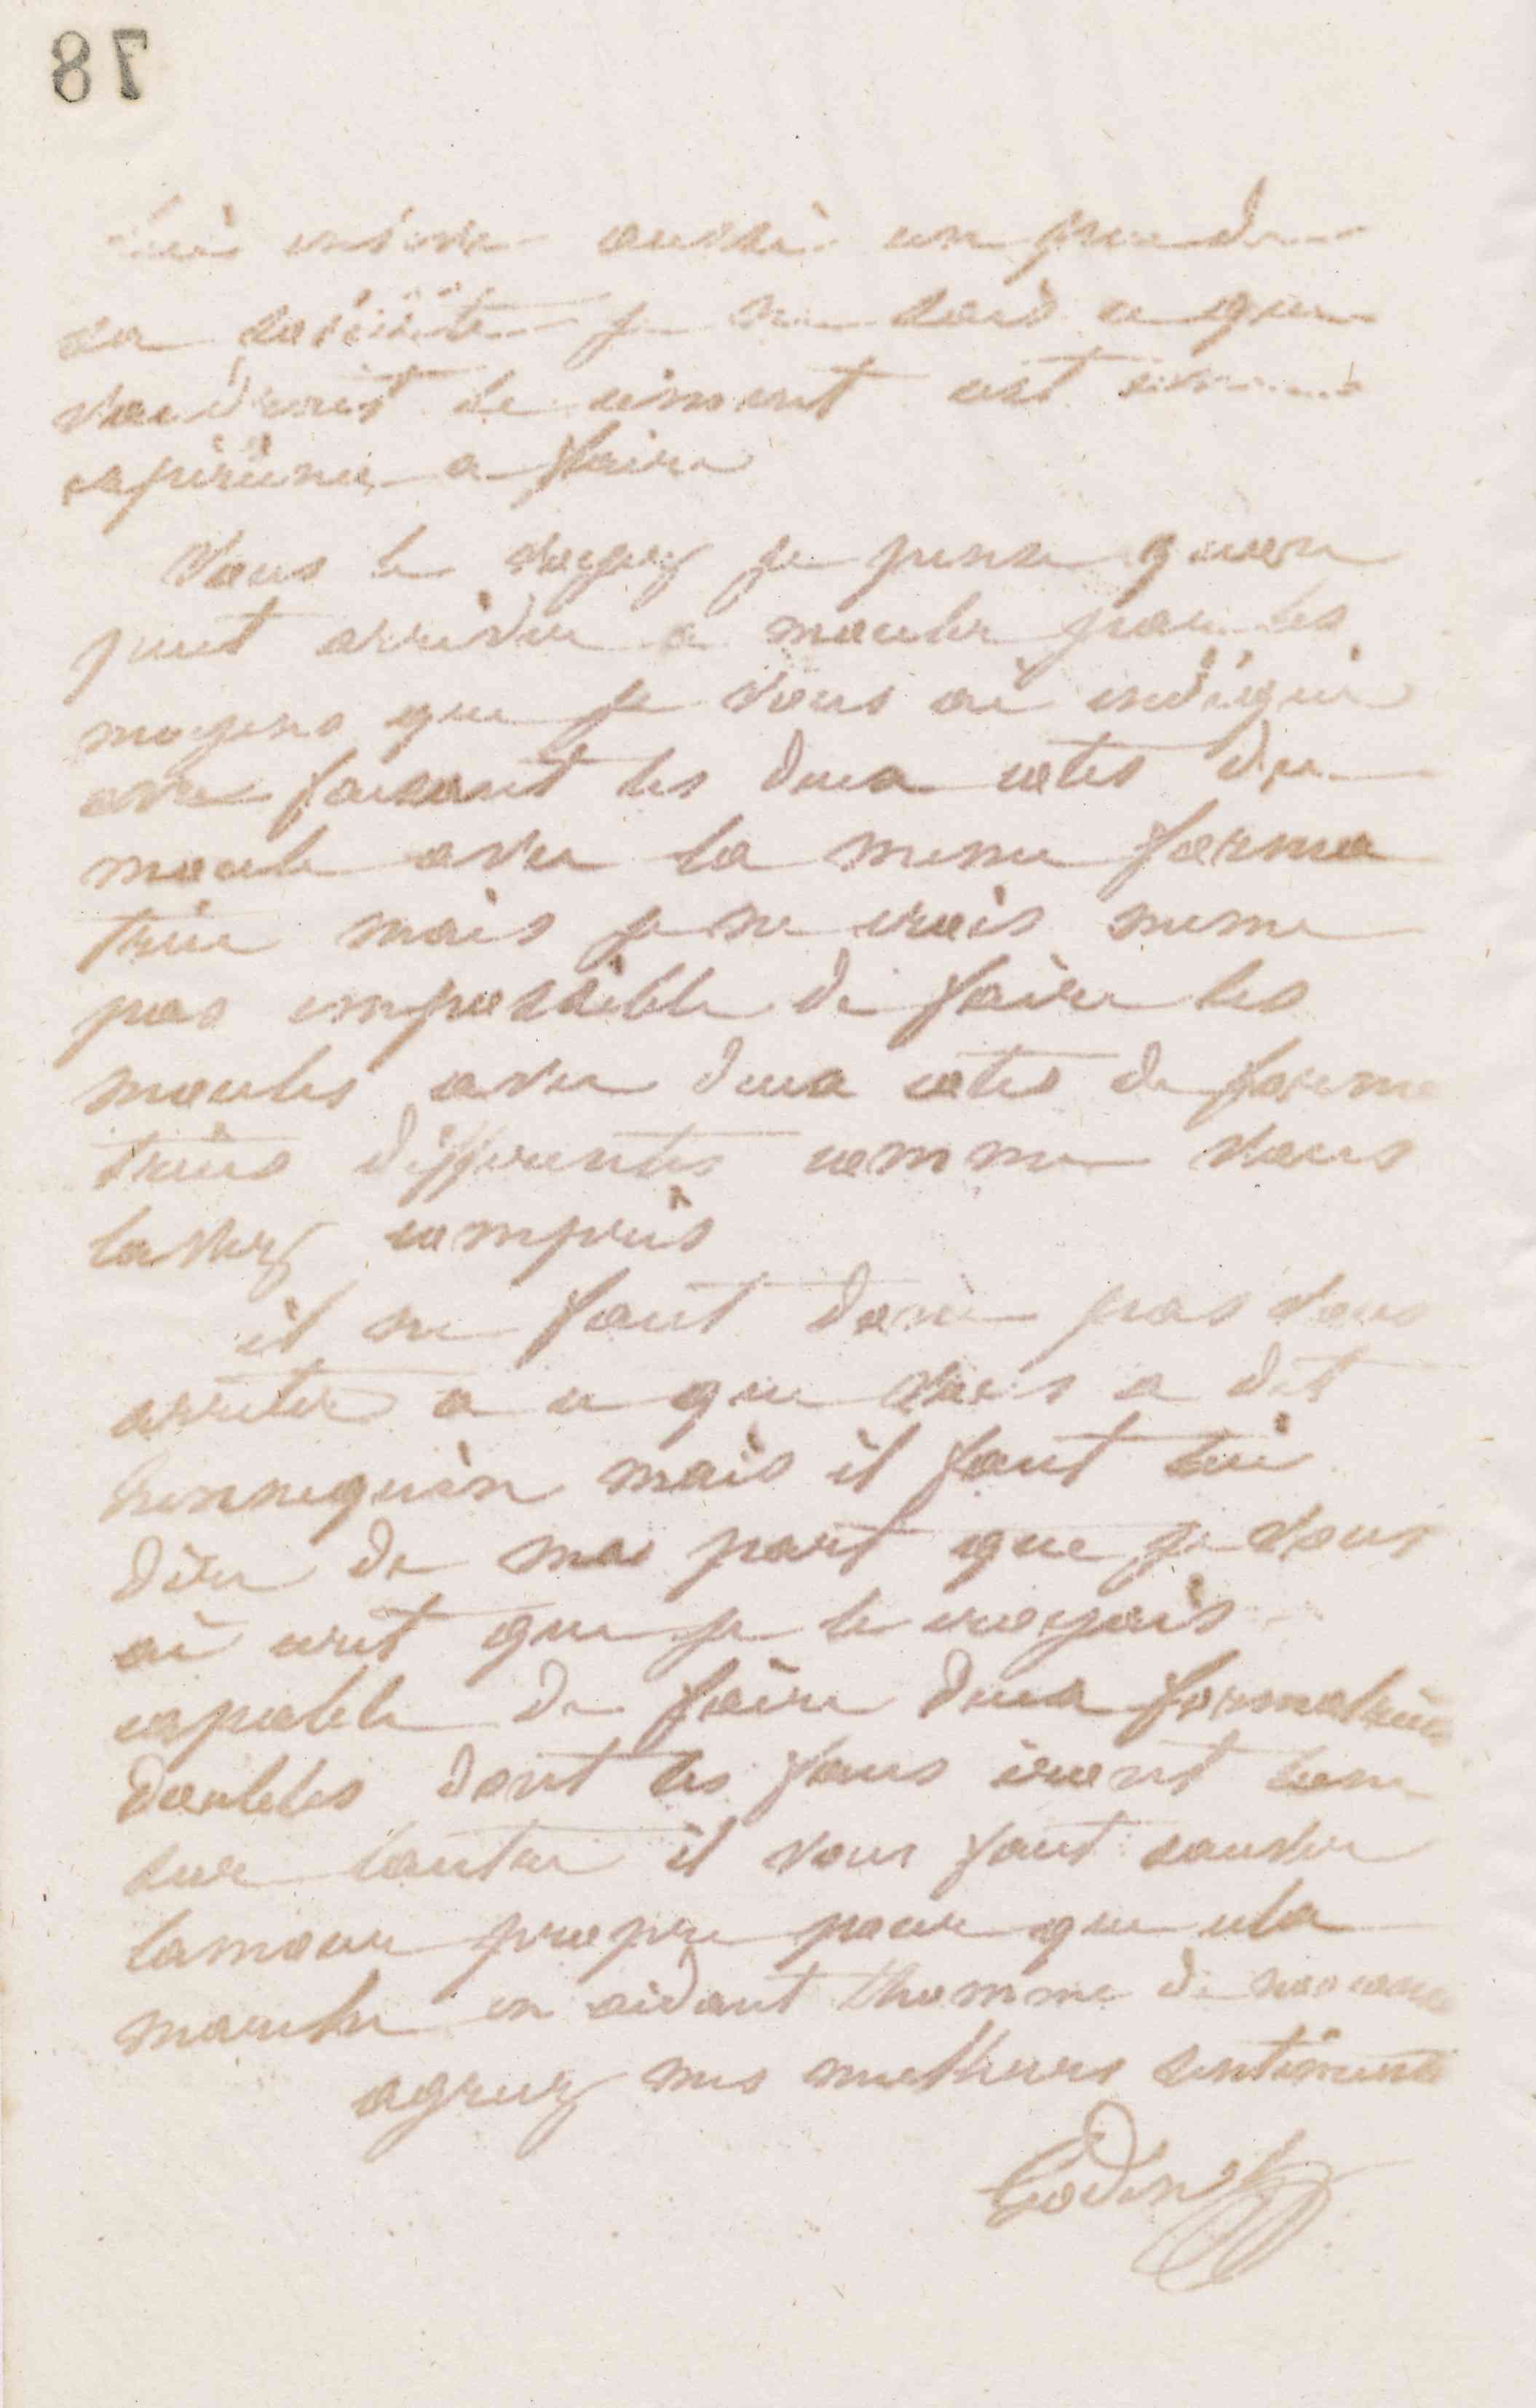 78
lui même aussi un peu de
sa
voudrait le ciment est une
expérience a faire
Vous le voyez je pense quon
peut arriver a mouler par les
moyens que je vous ai indiqué
en faisant les deux cotés du
moule avec la meme forma
trice mais je ne crois meme
pas impossible de faire les
moules avec deux cotés de forma
trices differentes comme vous
lavez compris
il ne faut donc pas vous
arreter a ce que vous a dit
hennequin mais il faut lui
dire de ma part que je vous
ai écrit que je le croyais
capable de faire deux formatrices
doubles dont les faces iront lune
sur lautre il vous faut sauver
lamour propre pour que cela
marche en aidant lhomme de
agreez mes meilleurs sentiments
Godin